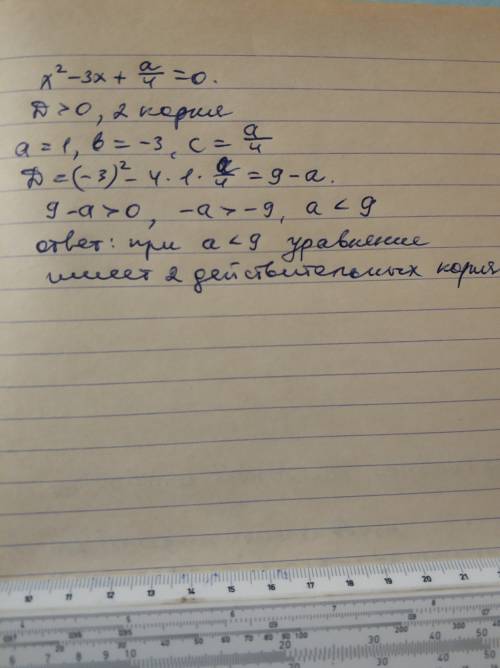 x² - 3x + a/4 = 0.
D > 0, 2 корня
a = 1, b = -3, c = a/4
D = (-3)² - 4 · 1 · a/4 = 9 - a.
9 - a > 0, -a > -9, a < 9
ответ: при a < 9 уравнение
имеет 2 действительных корня
11 12 13 14 15 16 17 18 19 20 21